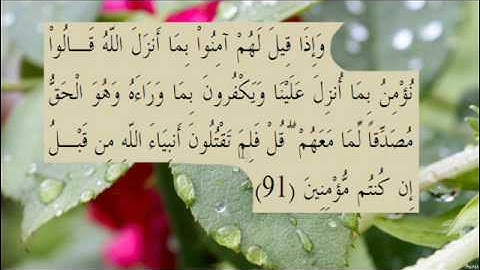 وَإِذَا قِيلَ لَهُمْ آمِنُواْ بِمَا أَنزَلَ اللّهُ قَالُواْ
نُؤْمِنُ بِمَا أُنزِلَ عَلَيْنَا وَيَكْفُرونَ بِمَا وَرَاءَهُ وَهُوَ الْحَقُّ
مُصَدِّقاً لِّمَا مَعَهُمْ ۗ قُلْ فَلِمَ تَقْتُلُونَ أَنبِيَاءَ اللّهِ مِن قَبْلُ
إِن كُنتُم مُّؤْمِنِينَ (91)